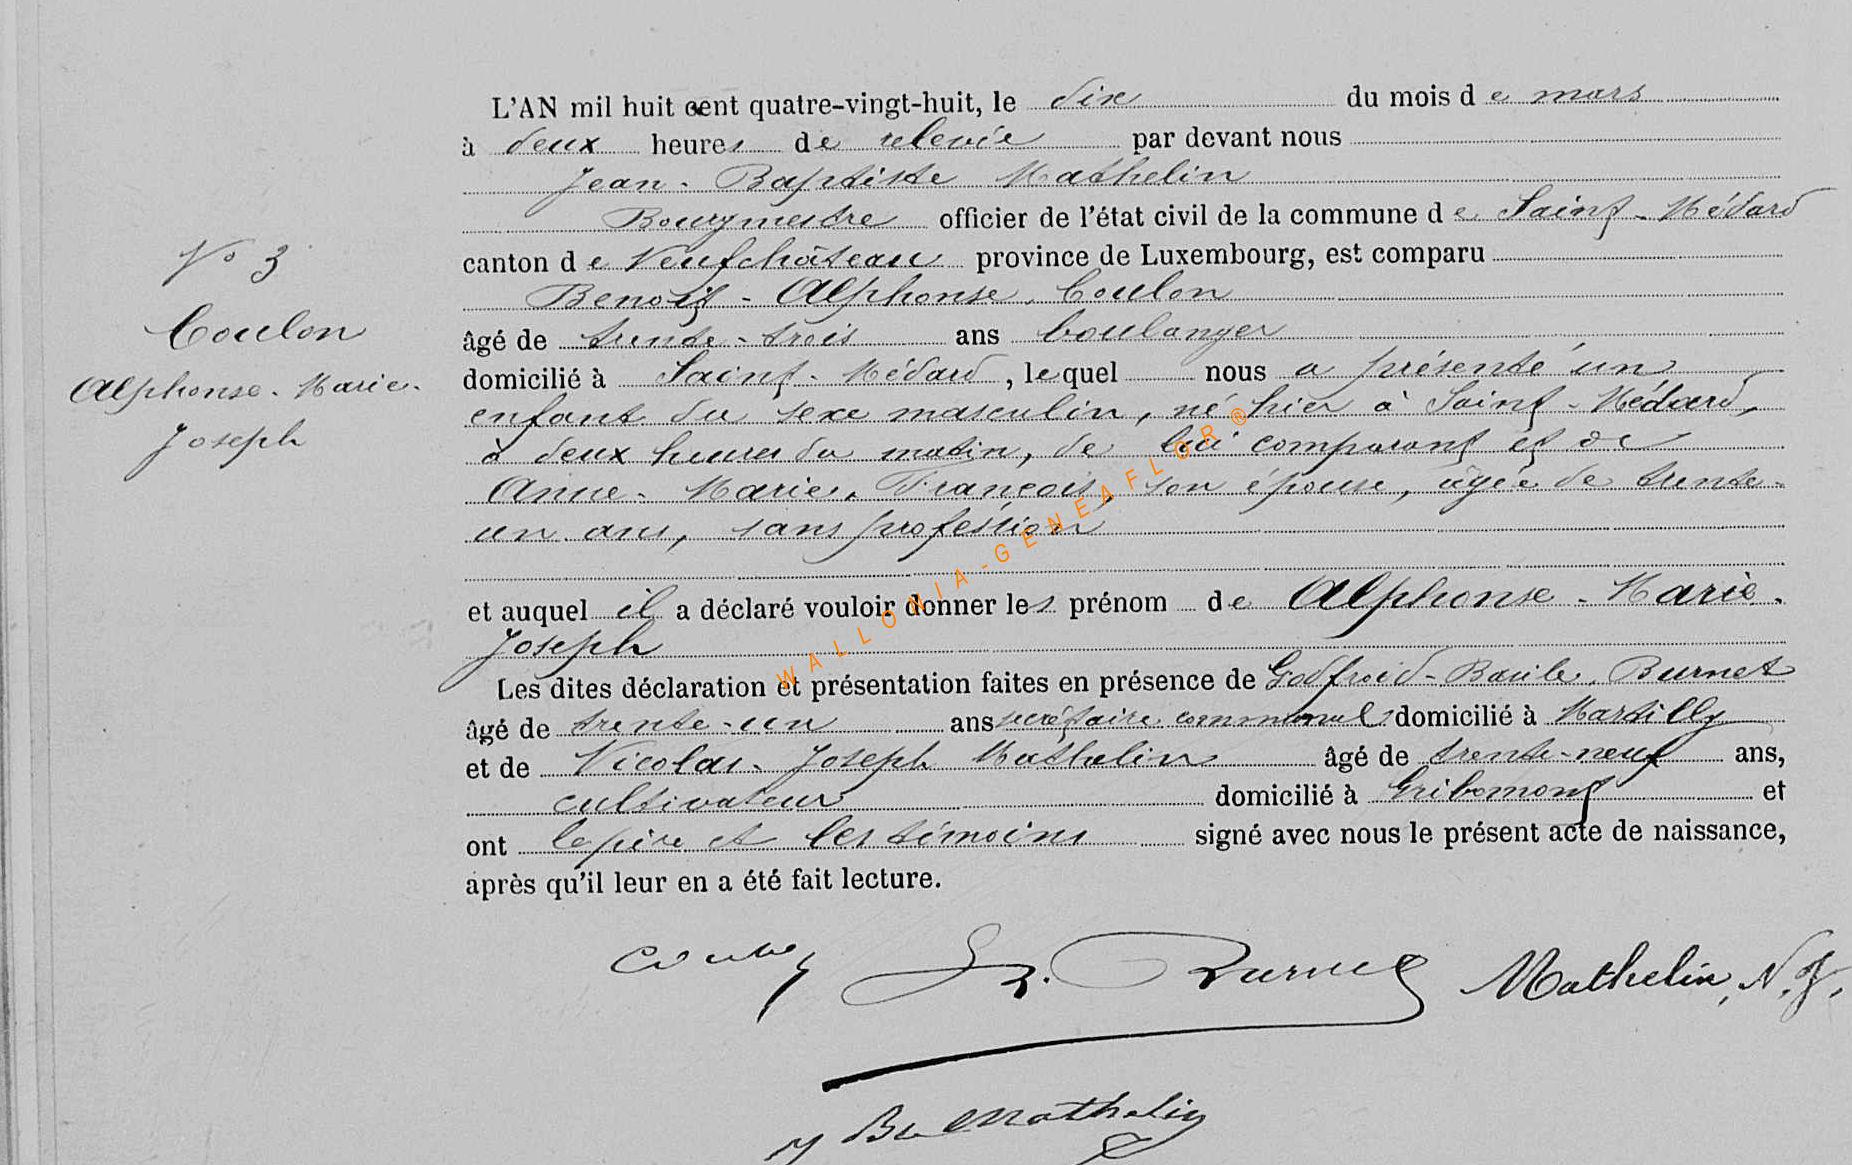 L'AN mil huit cent quatre-vingt-huit, le dix du mois de mars
à deux heures de relevée par devant nous
Jean-Baptiste Mathelin
Bourgmestre officier de l'état civil de la commune de Saint-Médard
canton de Neufchâteau province de Luxembourg, est comparu
Benoit-Alphonse Coulon
âgé de trente-trois ans boulanger
domicilié à Saint-Médard, lequel nous a présenté un
enfant du sexe masculin, né hier à Saint-Médard,
à deux heures du matin, de lui comparant et de
Anne-Marie François, son épouse, âgée de trente-
un ans, sans profession
et auquel il a déclaré vouloir donner les prénom de Alphonse-Marie-
Joseph
Les dites déclaration et présentation faites en présence de Godfroid-Basile Burnet
âgé de trente-un ans secrétaire communal domicilié à Martilly
et de Nicolas-Joseph Mathelin âgé de trente-neuf ans,
cultivateur domicilié à Gribomont et
ont le père et les témoins signé avec nous le présent acte de naissance,
après qu'il leur en a été fait lecture.
N° 3
Coulon
Alphonse-Marie-
Joseph
WALLONIA-GENEAFLOR®
Burnet
Mathelin, N. J.
Mathelin